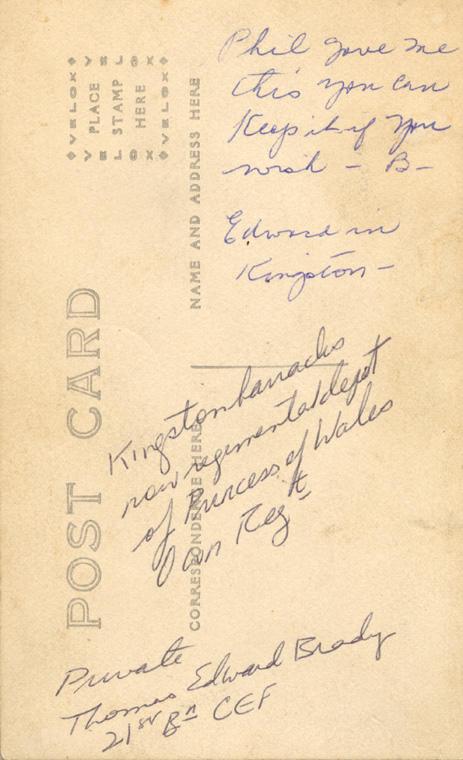 Phil gave me
this you can
Keep it if you
wish - B-
Edward in
Kingston -
Kingston barracks
now regimental depot
of Princess of Wales
Own Regt
Private
Thomas Edward Brady
21st Bn CEF
POST CARD
CORRESPONDENCE HERE
NAME AND ADDRESS HERE
VELOX
VELOX
PLACE
STAMP
HERE
VELOX
VELOX